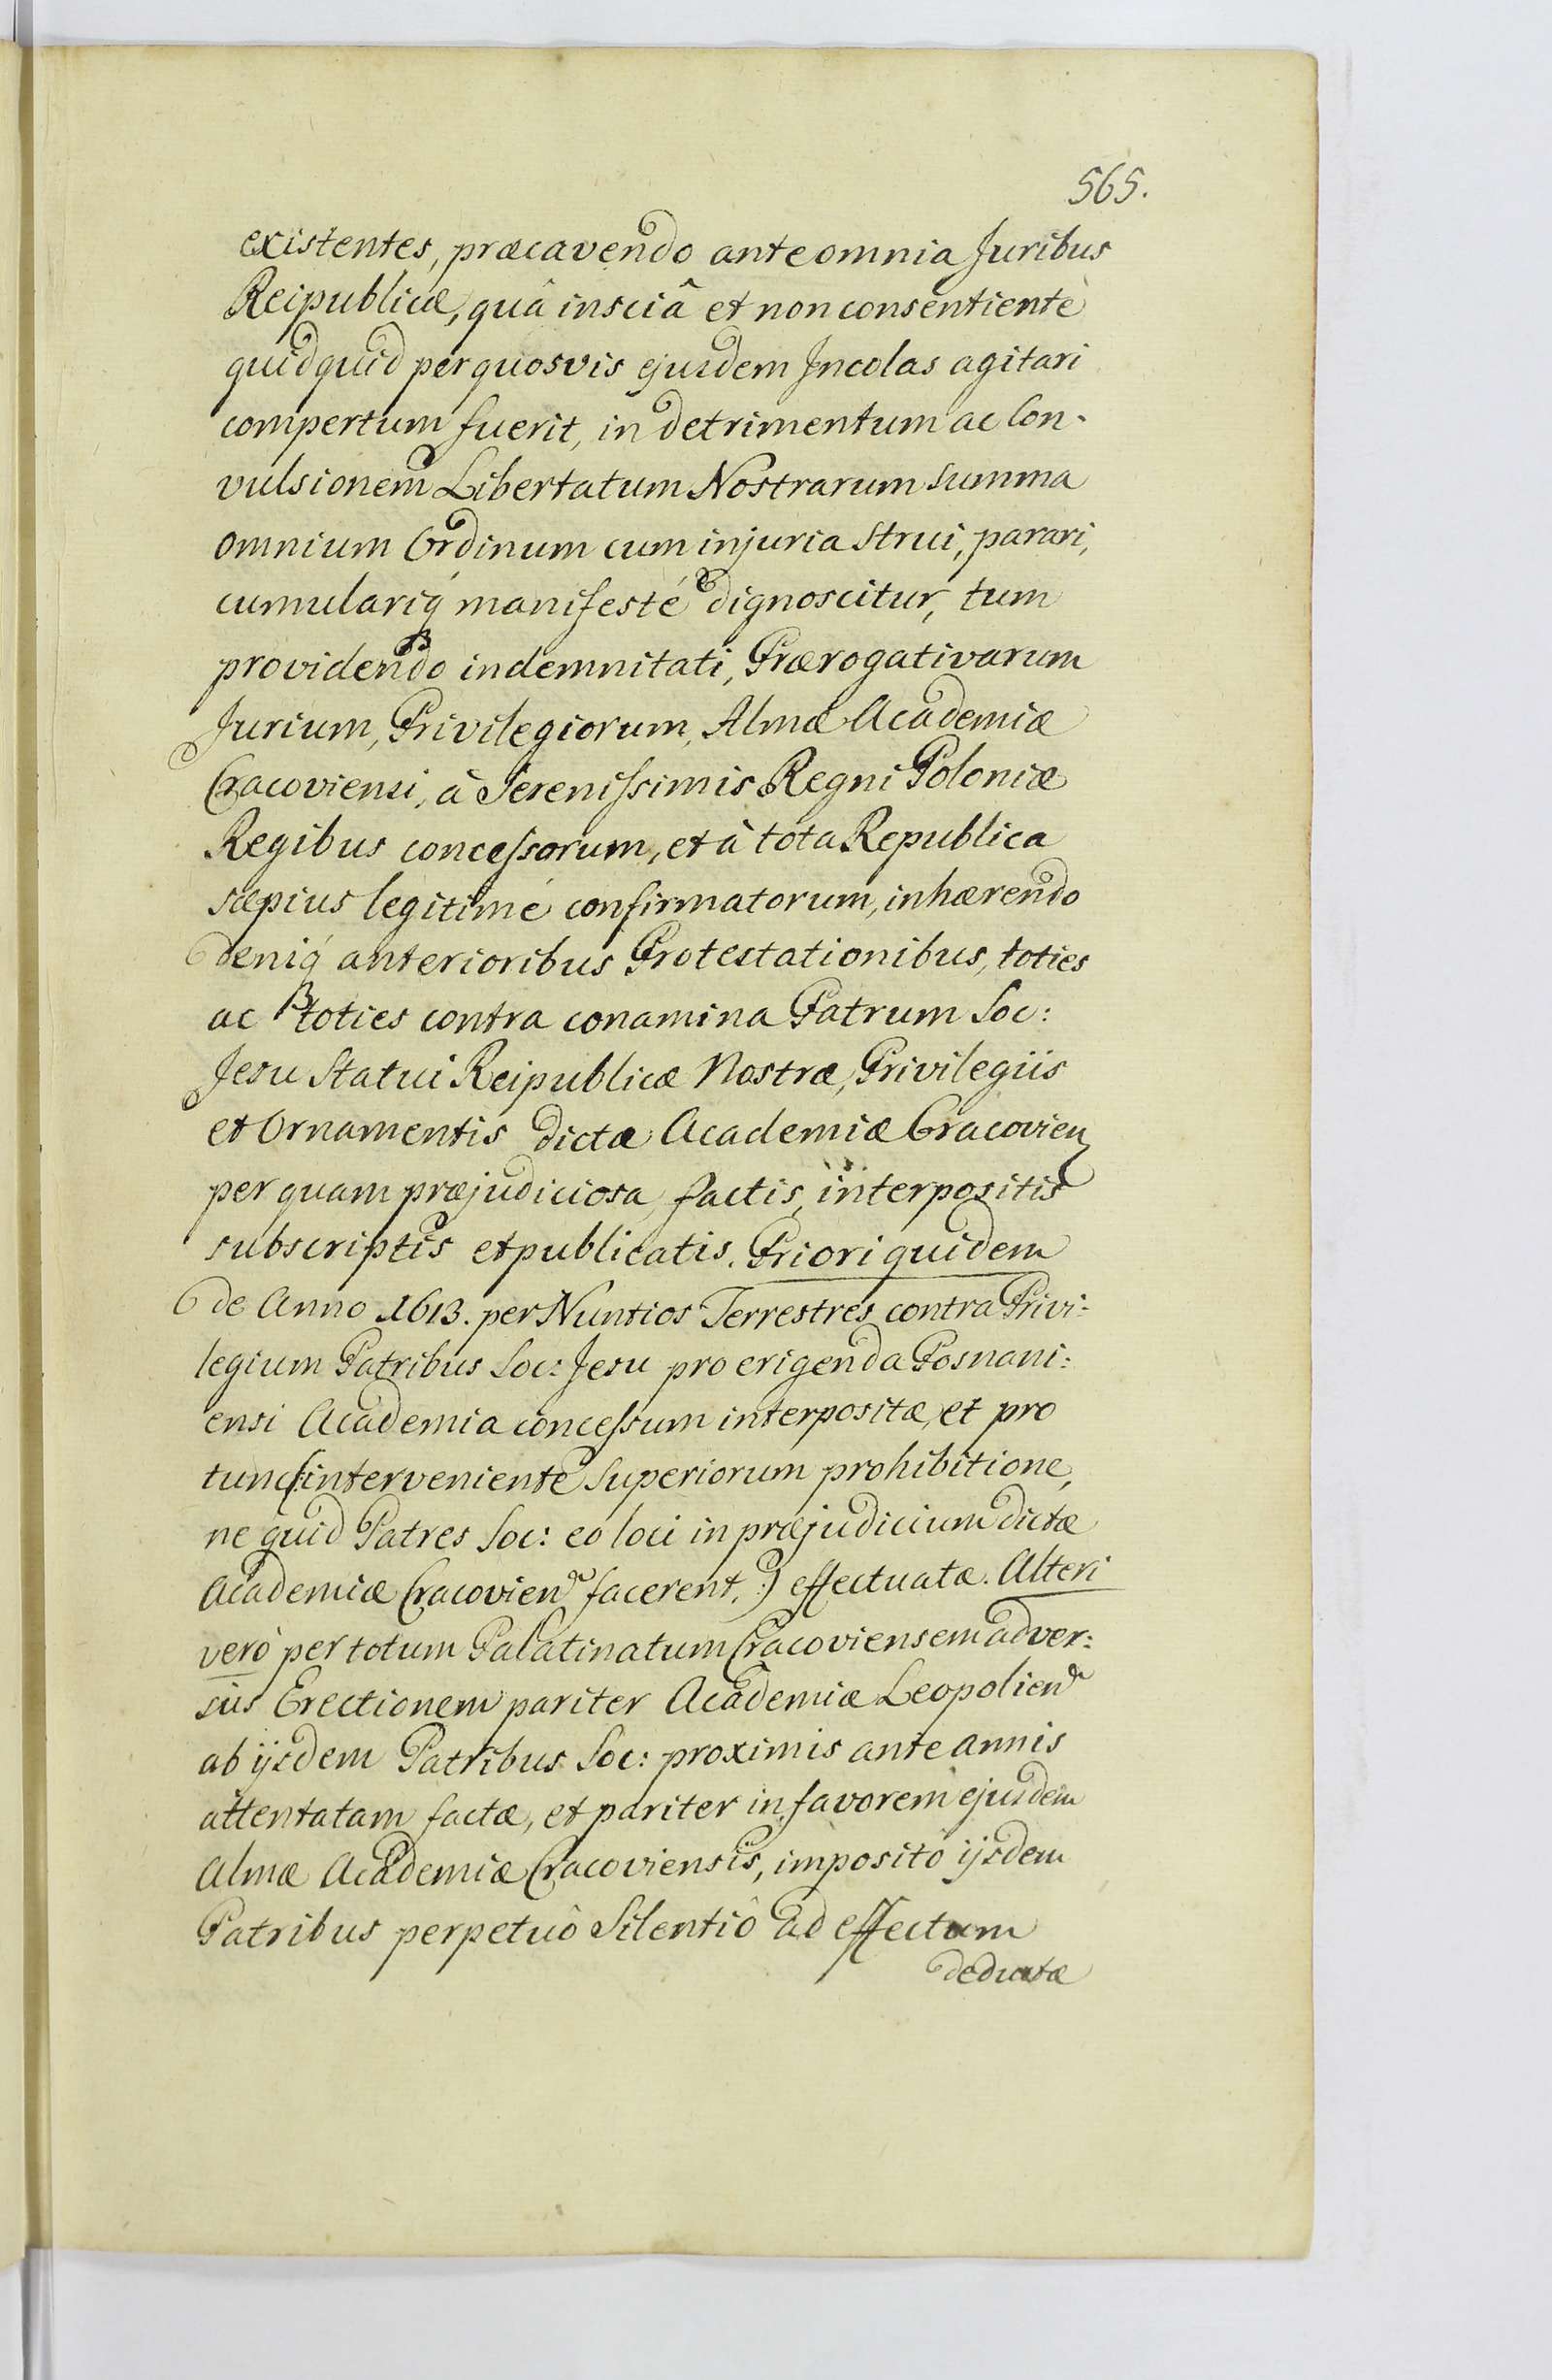 565.
existentes, præcavendo ante omnia Juribus
Reipublicæ, quâ insciâ et non consentiente
quidquid per quosvis ejusdem Incolas agitari
compertum fuerit, in detrimentum ac Con-
vulsionem Libertatum Nostrarum summa
omnium Ordinum cum injuria strui, parari,
cumulariq́ manifesté dignoscitur, tum
providendo indemnitati, Prærogativarum
Jurium, Privilegiorum, Almæ Academiæ
Cracoviensi, à Serenissimis Regni Poloniæ
Regibus concessorum, et à tota Republica
sæpius legitimé confirmatorum, inhærendo
deniq́ anterioribus Protestationibus, toties
ac toties contra conamina Patrum Soc:
Jesu Statui Reipublicæ Nostræ, Privilegiis
et Ornamentis dictæ Academiæ Cracovien
per quam præjudiciosa, factis, interpositis
subscriptis et publicatis. Priori quidem
de Anno 1613. per Nuntios Terrestres contra Privi:
legium Patribus Soc: Jesu pro erigenda Posnani:
ensi Academia concessum interpositæ, et pro
tunc (:interveniente Superiorum prohibitione,
ne quid Patres Soc: eo loci in præjudicium dictæ
Academiæ Cracovien facerent, :) effectuatæ. Alteri
verò per totum Palatinatum Cracoviensem adver:
sus Erectionem pariter Academiæ Leopolien
ab ijsdem Patribus Soc: proximis ante annis
attentatam factæ, et pariter in favorem ejusdem
Almæ Academiæ Cracoviensis, imposito ijsdem
Patribus perpetuô Silentiô ad effectum
deductæ